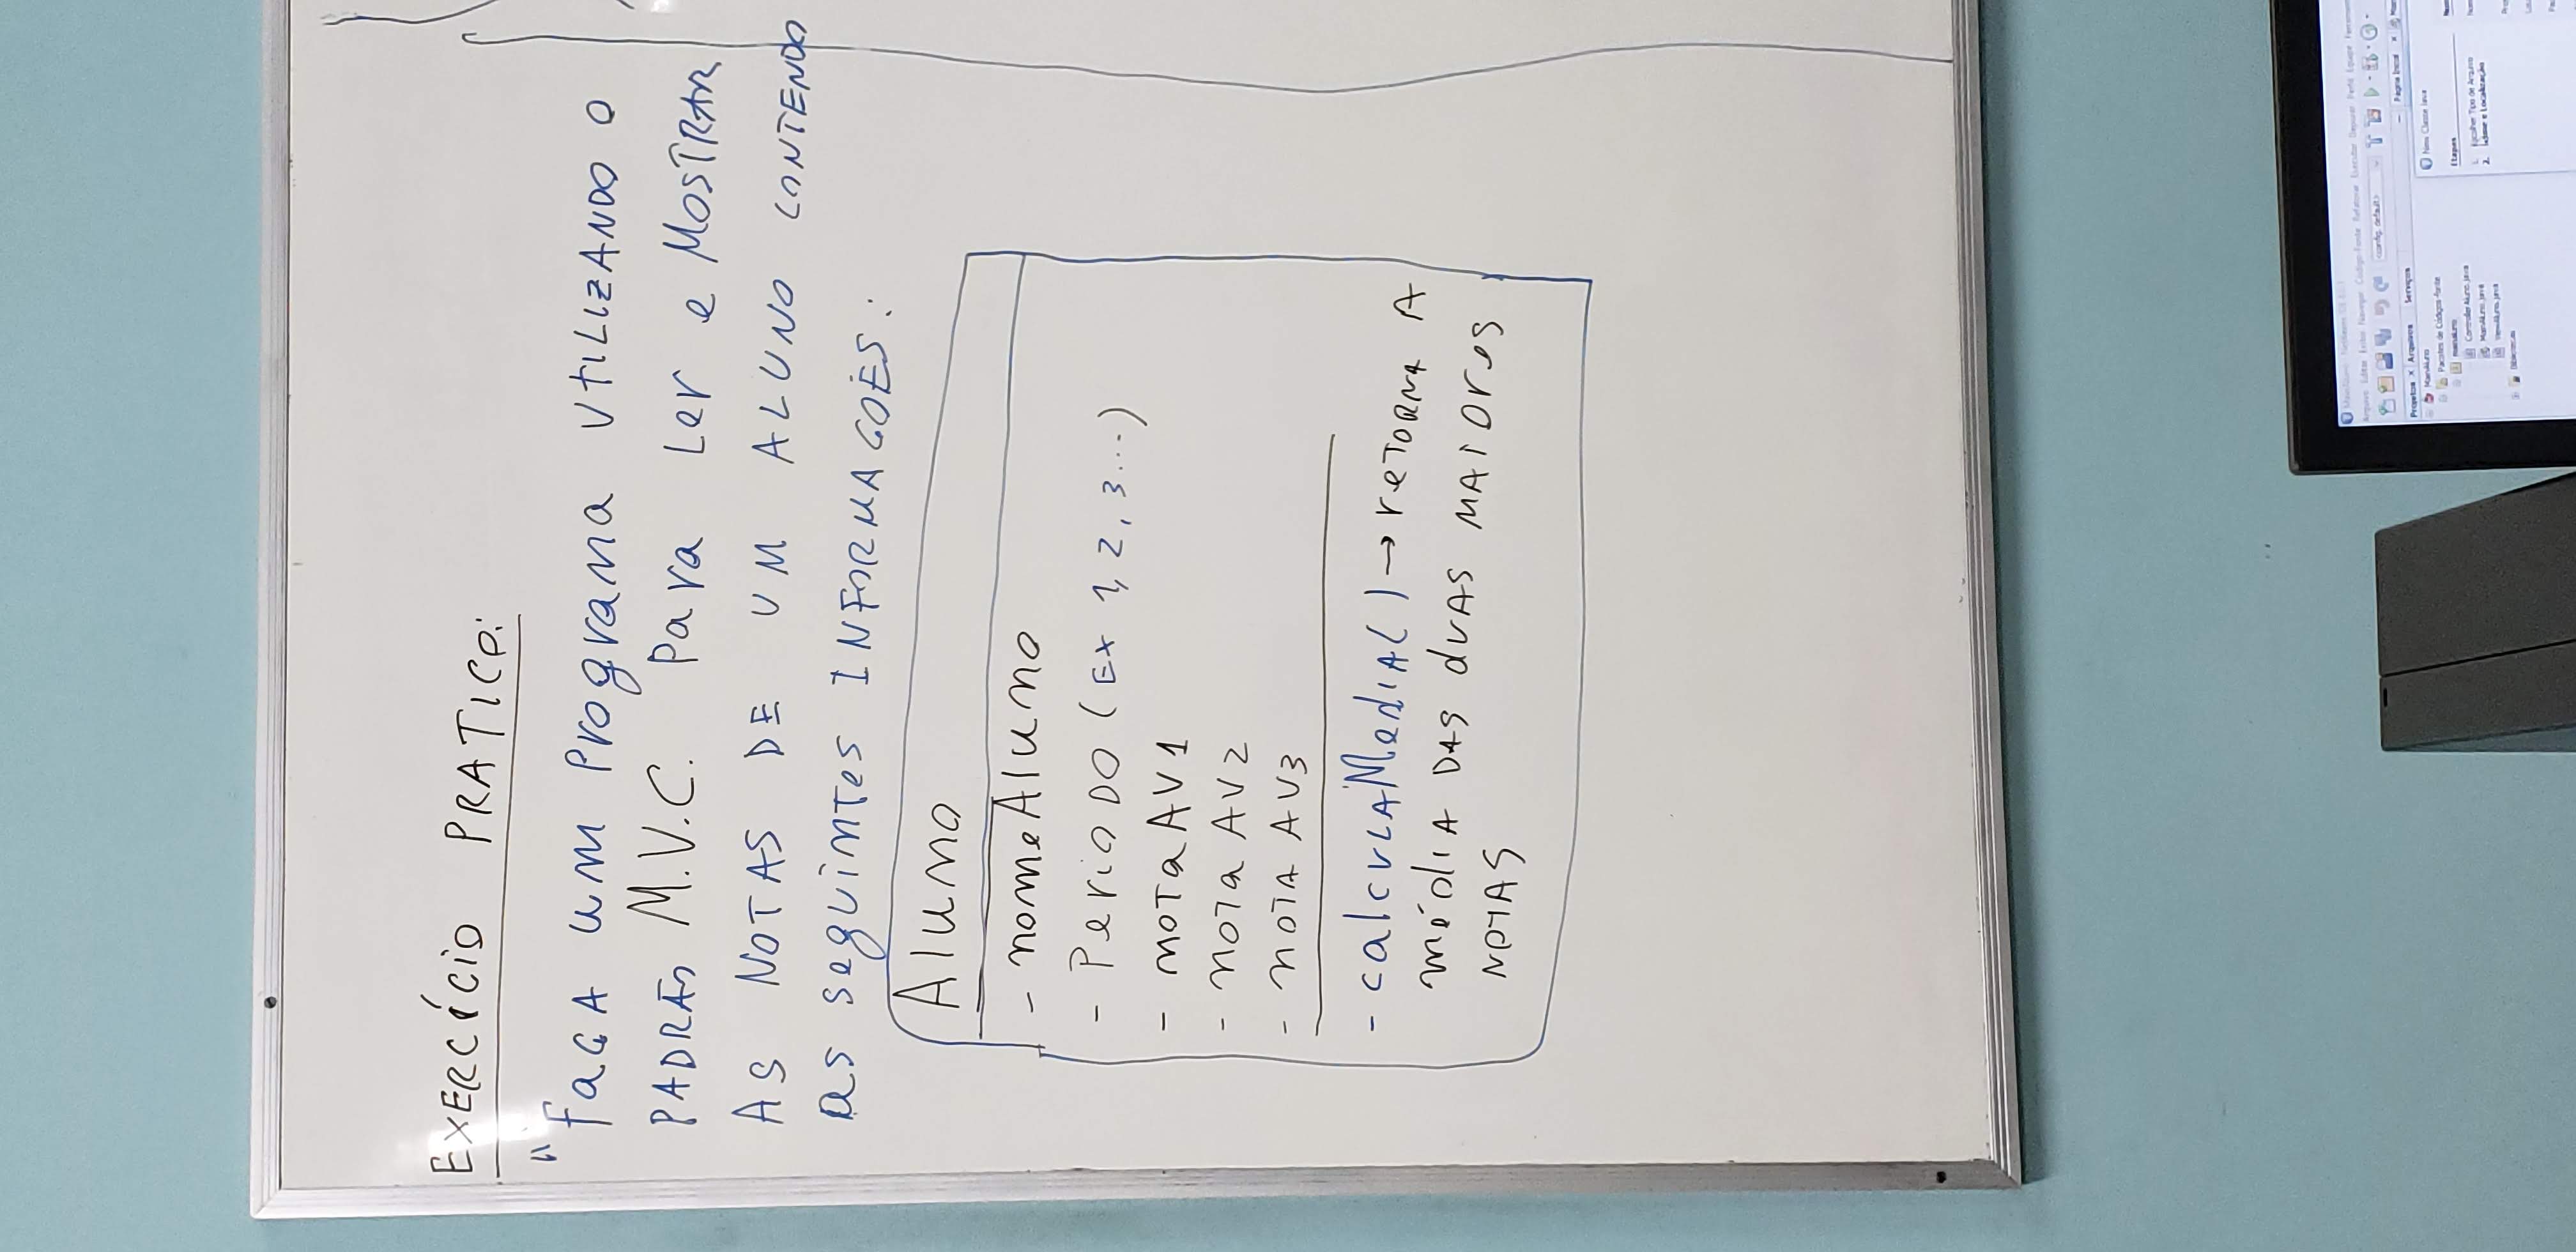 EXERCÍCIO PRATICO:
"FAÇA UM PROGRAMA UTILIZANDO O
PADRÃO M.V.C. PARA LER E MOSTRAR
AS NOTAS DE UM ALUNO CONTENDO
AS SEGUINTES INFORMAÇÕES:
Aluno
- nomeAluno
- PERIODO (EX 1, 2, 3...)
- notaAV1
- nota AV2
- nota AV3
- calculaMedia() → RETORNA A
média DAS DUAS MAIORES
NOTAS
Arquivo Editar Exibir Navegar Código-Fonte Refatorar Executar Depurar Perfil Equipe
<config. default>
Projetos × Arquivos Serviços
Página Inicial ×
MainAluno
Pacotes de Códigos-fonte
mainaluno
ControllerAluno.java
MainAluno.java
ViewAluno.java
Bibliotecas
New Classe Java
Etapas
1. Escolher Tipo de Arquivo
2. Nome e Localização